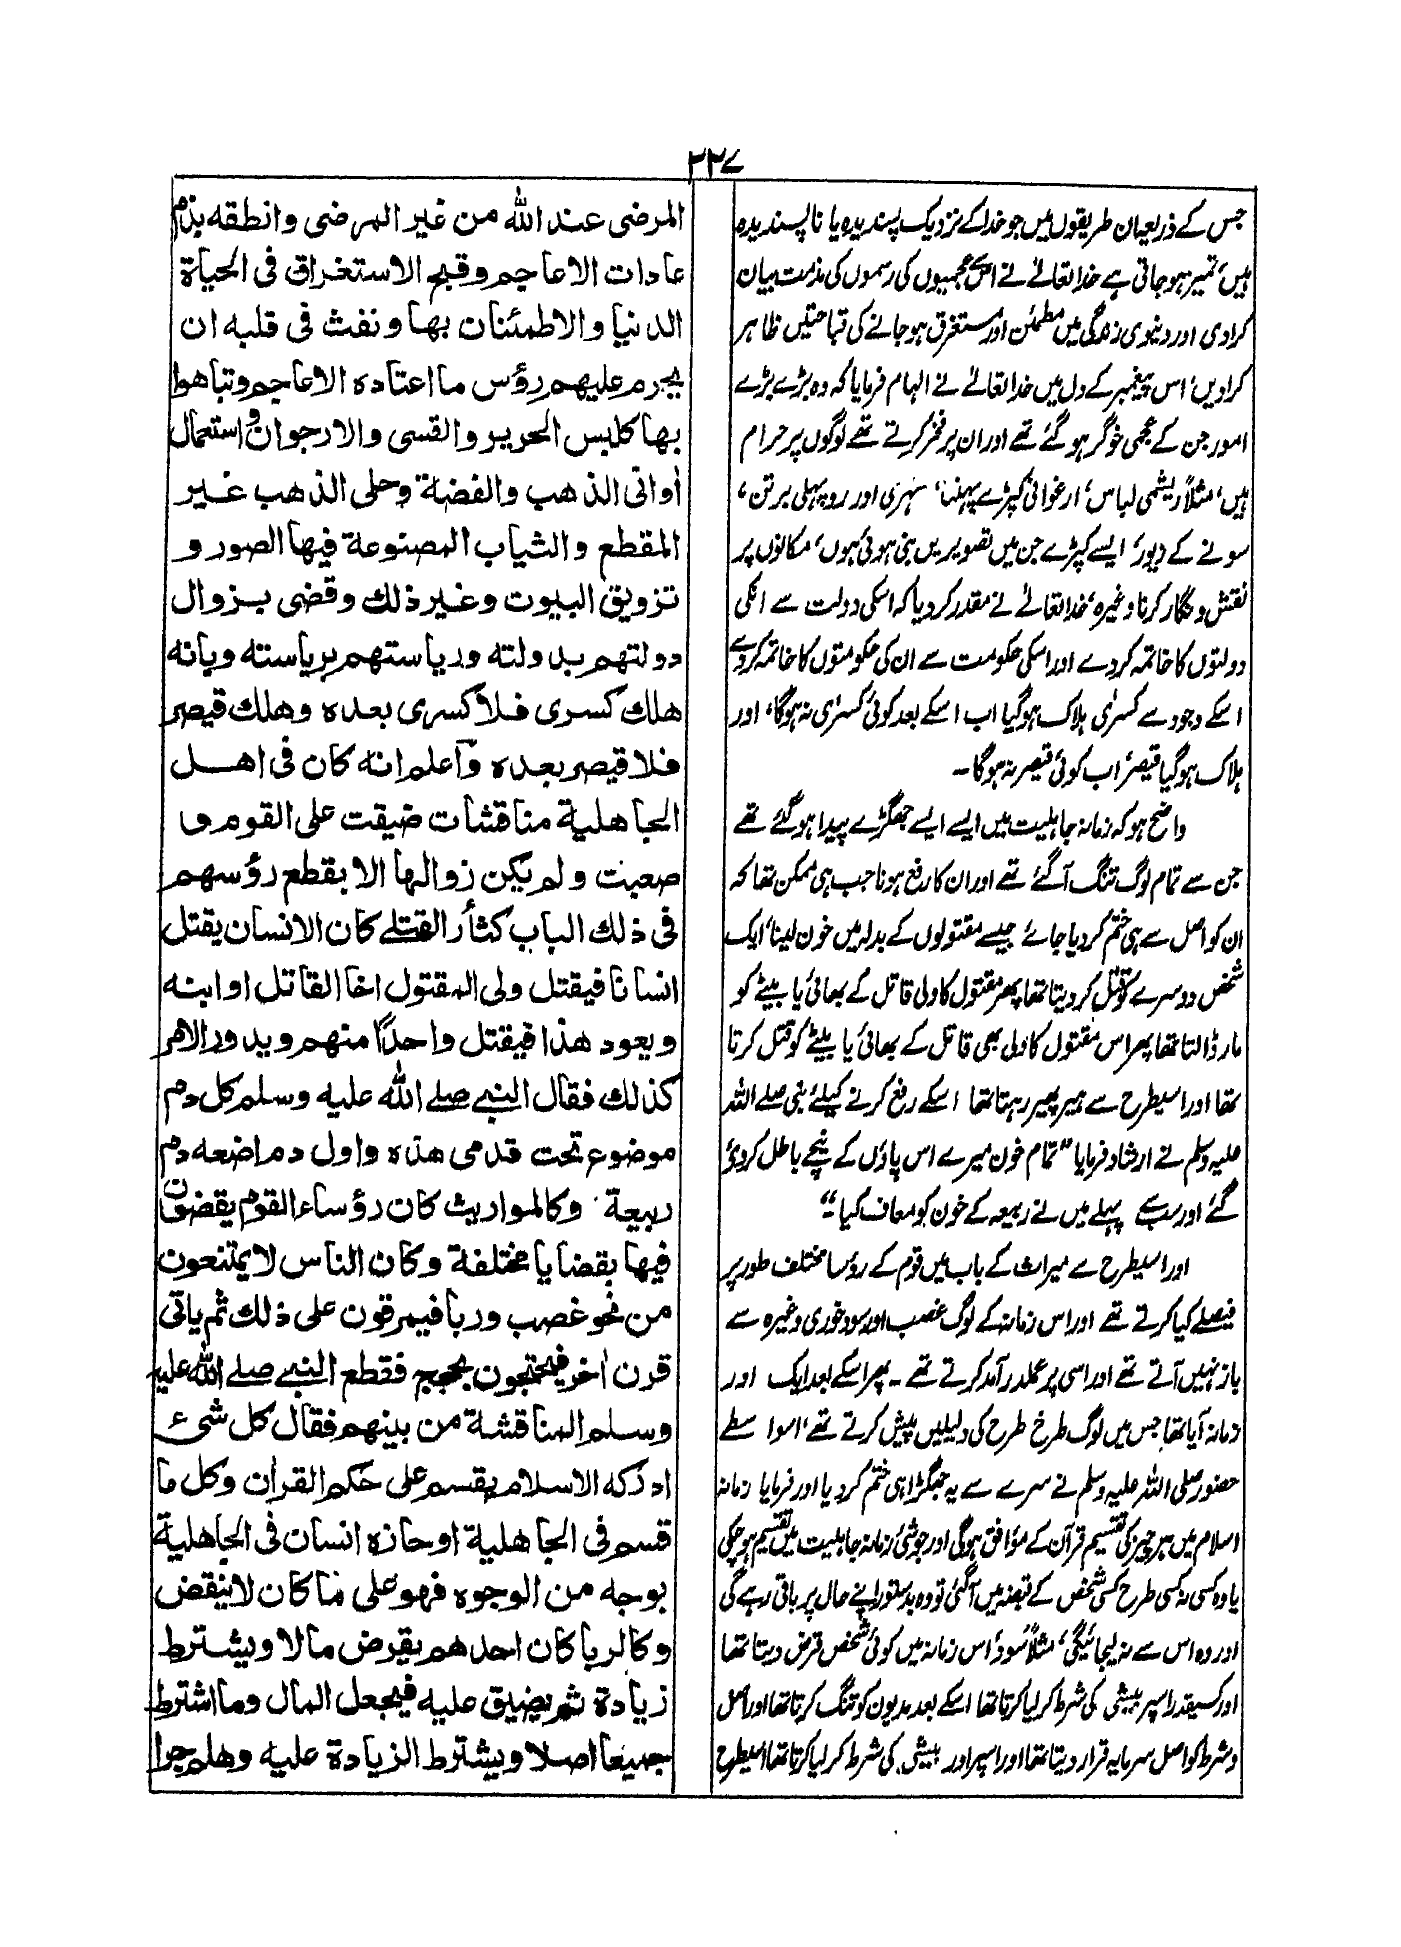 ۲۲۷
جس کے ذریعہ ان طریقوں میں جو خدا کے نزدیک پسندیدہ یا ناپسندیدہ
ہیں، تمیز ہو جاتی ہے خدا تعالےٰ نے اس سے عجمیوں کی رسموں کی مذمت بیان
کرا دی اور دنیوی زندگی میں مطمئن اور مستغرق ہو جانے کی قباحتیں ظاہر
کرا دیں، اس پیغمبر کے دل میں خدا تعالےٰ نے الہام فرمایا کہ وہ بڑے بڑے
امور جن کے عجمی خوگر ہو گئے تھے اور ان پر فخر کرتے تھے لوگوں پر حرام
ہیں، مثلاً ریشمی لباس، ارغوانی کپڑے پہننا، سنہری اور روپہلی برتن،
سونے کے زیور، ایسے کپڑے جن میں تصویریں بنی ہوئی ہوں، مکانوں پر
نقش و نگار کرنا وغیرہ، خدا تعالےٰ نے مقدر کر دیا کہ اسکی دولت سے انکی
دولتوں کا خاتمہ کر دے اور اسکی حکومت سے ان کی حکومتوں کا خاتمہ کر دے
اسکے وجود سے کسریٰ ہلاک ہو گیا اب اسکے بعد کوئی کسریٰ نہ ہوگا، اور
ہلاک ہو گیا قیصر، اب کوئی قیصر نہ ہوگا۔
واضح ہو کہ زمانہ جاہلیت میں ایسے ایسے جھگڑے پیدا ہو گئے تھے
جن سے تمام لوگ تنگ آ گئے تھے اور ان کا رفع ہونا جب ہی ممکن تھا کہ
ان کو اصل سے ہی ختم کر دیا جائے جیسے مقتولوں کے بدلہ میں خون لینا، ایک
شخص دوسرے کو قتل کر دیتا تھا پھر مقتول کا ولی قاتل کے بھائی یا بیٹے کو
مار ڈالتا تھا پھر اس مقتول کا ولی بھی قاتل کے بھائی یا بیٹے کو قتل کرتا
تھا اور اسیطرح سے ہیر پھیر رہتا تھا اسکے رفع کرنے کیلئے نبی صلے اللہ
علیہ وسلم نے ارشاد فرمایا "تمام خون میرے اس پاؤں کے نیچے باطل کر دئے
گئے اور سب سے پہلے میں نے ربیعہ کے خون کو معاف کیا"۔
اور اسیطرح سے میراث کے باب میں قوم کے رؤسا مختلف طور پر
فیصلے کیا کرتے تھے اور اس زمانہ کے لوگ غصب اور سود خوری وغیرہ سے
باز نہیں آتے تھے اور اسی پر عملدر آمد کرتے تھے۔ پھر اسکے بعد ایک اور
زمانہ آیا تھا جس میں لوگ طرح طرح کی دلیلیں پیش کرتے تھے، اسواسطے
حضور صلی اللہ علیہ وسلم نے سرے سے یہ جھگڑا ہی ختم کر دیا اور فرمایا زمانہ
اسلام میں ہر چیز کی تقسیم قرآن کے موافق ہوگی اور جو شئی زمانہ جاہلیت میں تقسیم ہو چکی
یا وہ کسی نہ کسی طرح کسی شخص کے قبضہ میں آ گئی تو وہ بدستور اپنے حال پر باقی رہے گی
اور وہ اس سے نہ لیجائیگی، مثلاً سود، اس زمانہ میں کوئی شخص قرض دیتا تھا
اور کسیقدر اسپر بیشی کی شرط کر لیا کرتا تھا اسکے بعد مدیون کو تنگ کرتا تھا اور اصل
و شرط کو اصل سرمایہ قرار دیتا تھا اور اسپر اور بیشی کی شرط کر لیا کرتا تھا اسیطرح
المرضى عند الله من غير المرضى وانطقه بذم
عادات الاعاجم وقبح الاستغراق فى الحياة
الدنيا والاطمئنان بها ونفث فى قلبه ان
يحرم عليهم رؤس ما اعتاده الاعاجم وتباهوا
بها كلبس الحرير والقسى والارجوان واستعمال
أوانى الذهب والفضة وحلى الذهب غير
المقطع والثياب المصنوعة فيها الصور و
تزويق البيوت وغير ذلك وقضى بزوال
دولتهم بدولته ورياستهم برياسته وبانه
هلك كسرى فلا كسرى بعده وهلك قيصر
فلا قيصر بعده واعلم انه كان فى اهل
الجاهلية مناقشات ضيقت على القوم و
صعبت ولم يكن زوالها الا بقطع رؤسهم
فى ذلك الباب كثأر القتلے كان الانسان يقتل
انسانا فيقتل ولى المقتول اخا القاتل او ابنه
ويعود هذا فيقتل واحدًا منهم ويدور الامر
كذلك فقال النبے صلے الله عليه وسلم كل دم
موضوع تحت قدمى هذه واول دم اضعه دم
ربيعة وكالمواريث كان رؤساء القوم يقضون
فيها بقضايا مختلفة وكان الناس لا يمتنعون
من نحو غصب وربا فيمرقون على ذلك ثم يأتى
قرن اٰخر فيحتجون بحجج فقطع النبے صلے الله عليه
وسلم المناقشة من بينهم فقال كل شىء
ادركه الاسلام يقسم على حكم القراٰن وكل ما
قسم فى الجاهلية او حازه انسان فى الجاهلية
بوجه من الوجوه فهو على ما كان لا ينقض
وكالربا كان احدهم يقرض مالا ويشترط
زيادة ثم يضيق عليه فيجعل المال وما اشترط
جميعا اصلا ويشترط الزيادة عليه وهلم جرا